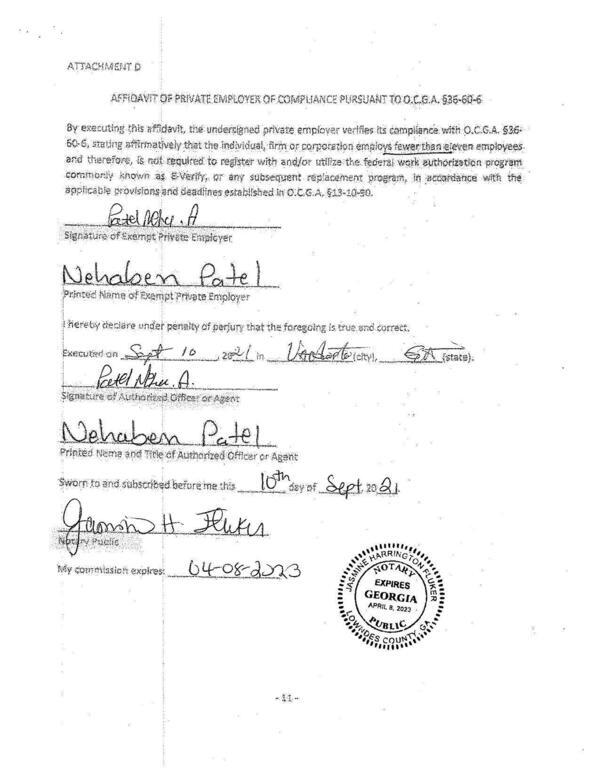 ATTACHMENT D
AFFIDAVIT OF PRIVATE EMPLOYER OF COMPLIANCE PURSUANT TO O.C.G.A. §36-60-6
By executing this affidavit, the undersigned private employer verifies its compliance with O.C.G.A. §36-
60-6, stating affirmatively that the individual, firm or corporation employs fewer than eleven employees
and therefore, is not required to register with and/or utilize the federal work authorization program
commonly known as E-Verify, or any subsequent replacement program, in accordance with the
applicable provisions and deadlines established in O.C.G.A. §13-10-90.
Patel Neha. A
Signature of Exempt Private Employer
Nehaben Patel
Printed Name of Exempt Private Employer
I hereby declare under penalty of perjury that the foregoing is true and correct.
Executed on Sept 10, 2021 in (city), GA (state).
Patel Neha. A.
Signature of Authorized Officer or Agent
Nehaben Patel
Printed Name and Title of Authorized Officer or Agent
Sworn to and subscribed before me this 10th day of Sept, 2021.
Jasmine H. Fluker
Notary Public
My commission expires: 04-08-2023
JASMINE HARRINGTON FLUKER
NOTARY
EXPIRES
GEORGIA
APRIL 8, 2023
PUBLIC
LOWNDES COUNTY, GA
-11-